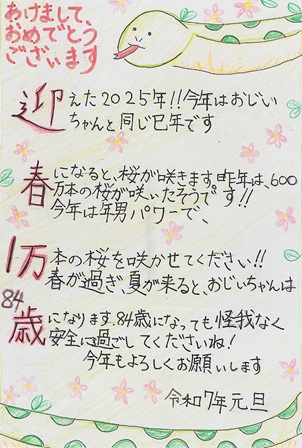 あけまして、
おめでとう
ございます
迎えた2025年!!今年はおじい
ちゃんと同じ巳年です
春になると、桜が咲きます。昨年は、600
万本の桜が咲いたそうです!!
今年は年男パワーで、
1万本の桜を咲かせてください!!
春が過ぎ、夏が来ると、おじいちゃんは
84歳になります。84歳になっても怪我なく
安全に過ごしてくださいね!
今年もよろしくお願いします
令和7年元旦